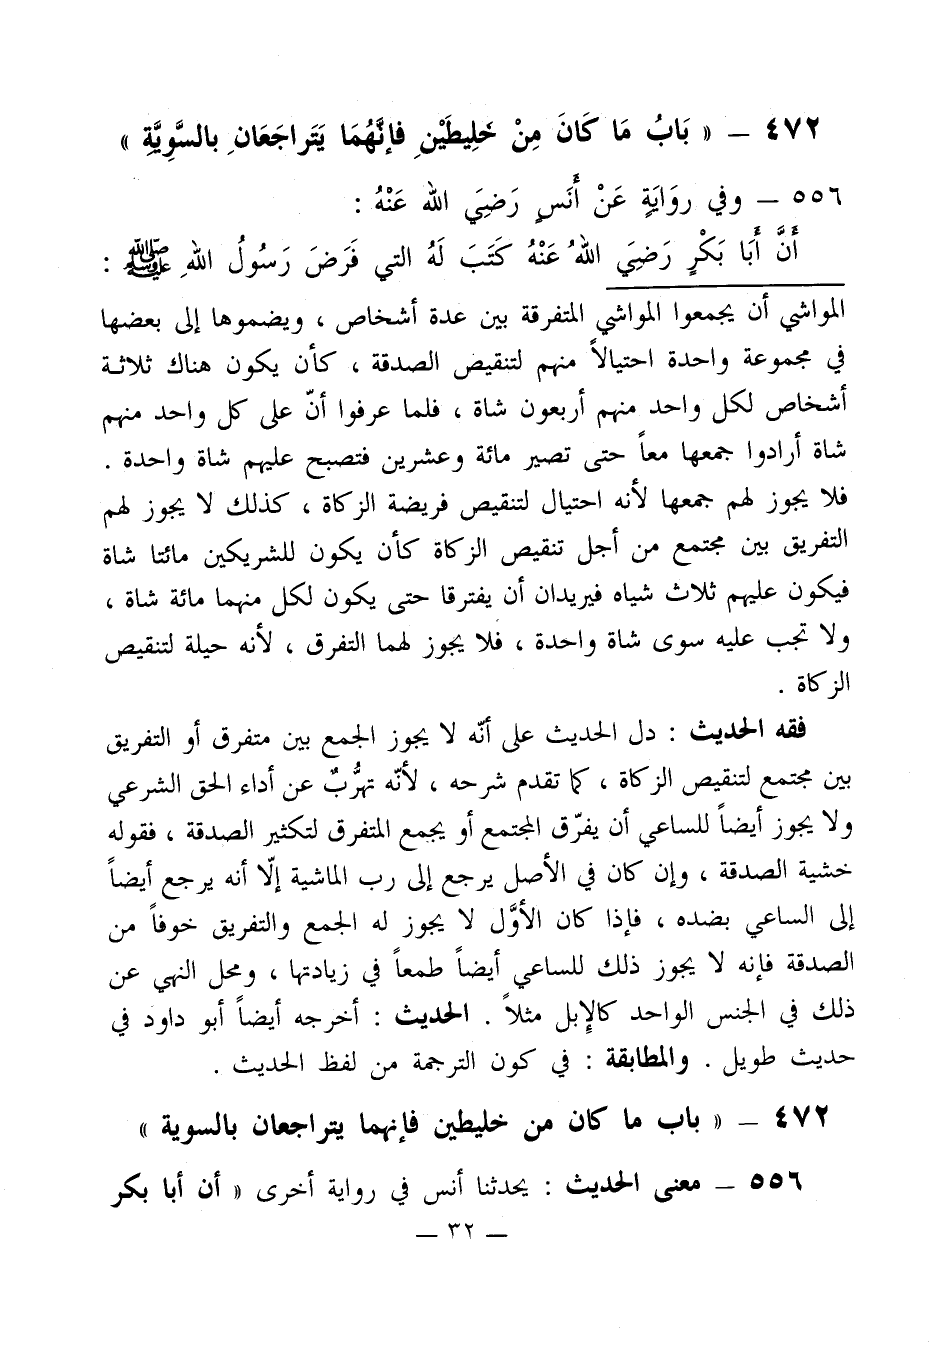 ٤٧٢ – « بَابُ مَا كَانَ مِنْ خَلِيطَيْنِ فَإنَّهُمَا يَتَراجَعَانِ بالسَّوِيَّةِ »
٥٥٦ – وفي روَايَةٍ عَنْ أَنَسٍ رَضِيَ الله عَنْهُ :
أَنَّ أَبَا بَكْرٍ رَضِيَ اللهُ عَنْهُ كَتَبَ لَهُ التي فَرَضَ رَسُولُ اللهِ ﷺ :
المواشي أن يجمعوا المواشي المتفرقة بين عدة أشخاص ، ويضموها إلى بعضها
في مجموعة واحدة احتيالاً منهم لتنقيص الصدقة ، كأن يكون هناك ثلاثة
أشخاص لكل واحد منهم أربعون شاة ، فلما عرفوا أنّ على كل واحد منهم
شاة أرادوا جمعها معاً حتى تصير مائة وعشرين فتصبح عليهم شاة واحدة .
فلا يجوز لهم جمعها لأنه احتيال لتنقيص فريضة الزكاة ، كذلك لا يجوز لهم
التفريق بين مجتمع من أجل تنقيص الزكاة كأن يكون للشريكين مائتا شاة
فيكون عليهم ثلاث شياه فيريدان أن يفترقا حتى يكون لكل منهما مائة شاة ،
ولا تجب عليه سوى شاة واحدة ، فلا يجوز لهما التفرق ، لأنه حيلة لتنقيص
الزكاة .
فقه الحديث : دل الحديث على أنّه لا يجوز الجمع بين متفرق أو التفريق
بين مجتمع لتنقيص الزكاة ، كما تقدم شرحه ، لأنّه تهرُّبٌ عن أداء الحق الشرعي
ولا يجوز أيضاً للساعي أن يفرّق المجتمع أو يجمع المتفرق لتكثير الصدقة ، فقوله
خشية الصدقة ، وإن كان في الأصل يرجع إلى رب الماشية إلّا أنه يرجع أيضاً
إلى الساعي بضده ، فإذا كان الأوَّل لا يجوز له الجمع والتفريق خوفاً من
الصدقة فإنه لا يجوز ذلك للساعي أيضاً طمعاً في زيادتها ، ومحل النهي عن
ذلك في الجنس الواحد كالإِبل مثلاً . الحديث : أخرجه أيضاً أبو داود في
حديث طويل . والمطابقة : في كون الترجمة من لفظ الحديث .
٤٧٢ – « باب ما كان من خليطين فإنهما يتراجعان بالسوية »
٥٥٦ – معنى الحديث : يحدثنا أنس في رواية أخرى « أن أبا بكر
– ٣٢ –